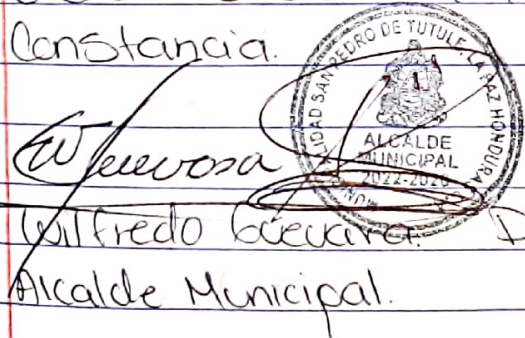 Constancia.
MUNICIPALIDAD SAN PEDRO DE TUTULE LA PAZ HONDURAS
ALCALDE
MUNICIPAL
2022-2026
Wilfredo Guevara.
Alcalde Municipal.